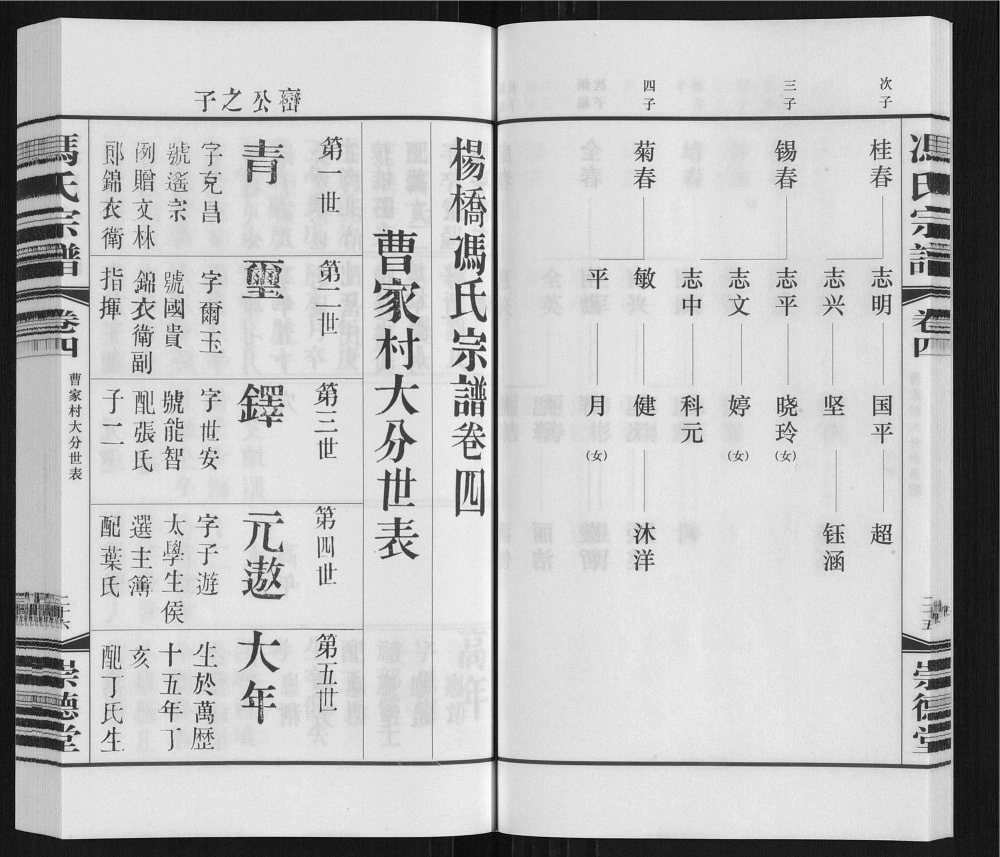 馮氏宗譜
卷四
二十五
崇德堂
次子
桂春
志明
国平
超
志兴
坚
钰涵
三子
锡春
志平
晓玲(女)
志文
婷(女)
志中
科元
四子
菊春
敏
健
沐洋
平
月(女)
楊橋馮氏宗譜卷四
曹家村大分世表
第一世
第二世
第三世
第四世
第五世
公之子
青
字克昌
號遙宗
例贈文林
郎錦衣衛
璽
字爾玉
號國貴
錦衣衛副
指揮
鐸
字世安
號能智
配張氏
子一
元遨
字子遊
太學生侯
選主簿
配葉氏
大年
生於萬歷
十五年丁
亥
配丁氏生
馮氏宗譜
卷四
曹家村大分世表
二十六
崇德堂